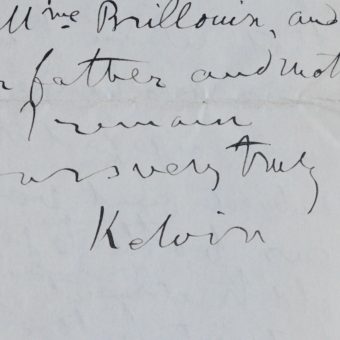 Mme Brillouin, and
r father and mot
I remain
ours very truly
Kelvin